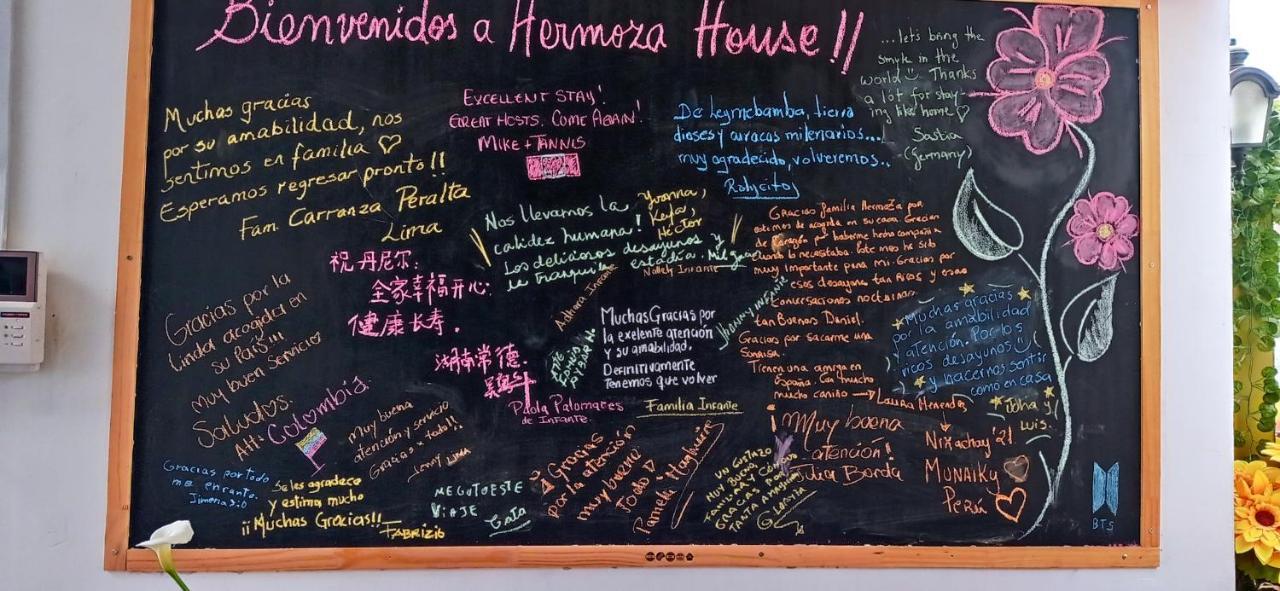 Bienvenidos a Hermoza House!!
Muchas gracias
por su amabilidad, nos
sentimos en familia ♡
Esperamos regresar pronto!!
Fam. Carranza Peralta
Lima
EXCELLENT STAY!
GREAT HOSTS. COME AGAIN!
MIKE + TANNIS
De Leymebamba, tierra
dioses y curacas milenarios...
muy agradecido, volveremos..
Ralycitos
...let's bring the
smyle in the
world Thanks
a lot for stay-
ing like home ♡
Saskia
(Germany)
Nos llevamos la
calidez humana!
Los deliciosos desayunos y
tranquila estadía.
Yvonna,
Keyla,
Héctor
祝丹尼尔:
全家幸福开心.
健康长寿.
湖南常德.
Gracias por la
linda acogida en
su país!!!
muy buen servicio
Saludos.
Att: Colombia.
Gracias familia Hermoza por
de corazón por haberme hecho compañía
cuando lo necesitaba. Este mes ha sido
muy importante para mi. Gracias por
esos desayunos tan Ricos y esas
Conversaciones nocturnas
tan Buenas Daniel.
Gracias por sacarme una
Sonrisa.
Tienen una amiga en
España. Con mucho
mucho cariño → Laura Menendes
Nolely Infante
Ashora Infante
Jhanny Infante
Muchas Gracias por
la exelente atención
y su amabilidad,
Definitivamente
Tenemos que volver
Paola Palomares
de Infante.
Familia Infante
Muchas gracias
por la amabilidad
y atención. Por los
ricos desayunos
y hacernos sentir
como en casa
Luis.
Muy buena
atención y servicio
Gracias x todo!!
Gracias por todo
me encanto.
Jimena :D
Se les agradece
y estima mucho
¡¡Muchas Gracias!!
Fabrizio
ME GUTO ESTE
VIAJE
Gracias
por la atención
muy bueno
todo
Pamela
UN GUSTAZO
MUY BUENA
FAMILIA Y CÓMODO
GRACIAS POR
TANTA AMABILIDAD
Gloria
Muy buena
atención!
Julia Borda
MUNAIKY
Perú
BTS